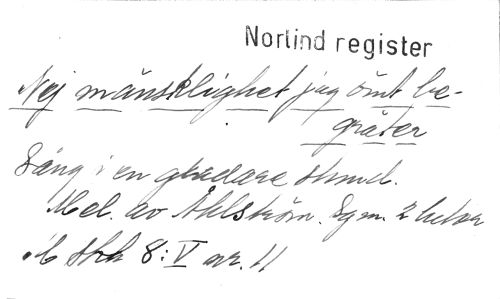 Norlind register
Nej mänsklighet jag ömt be-
gråter
Sång i en gladare stund.
Mel. av Åhlström. Sgm. 2 betar
Ib skh 8:V nr. 11